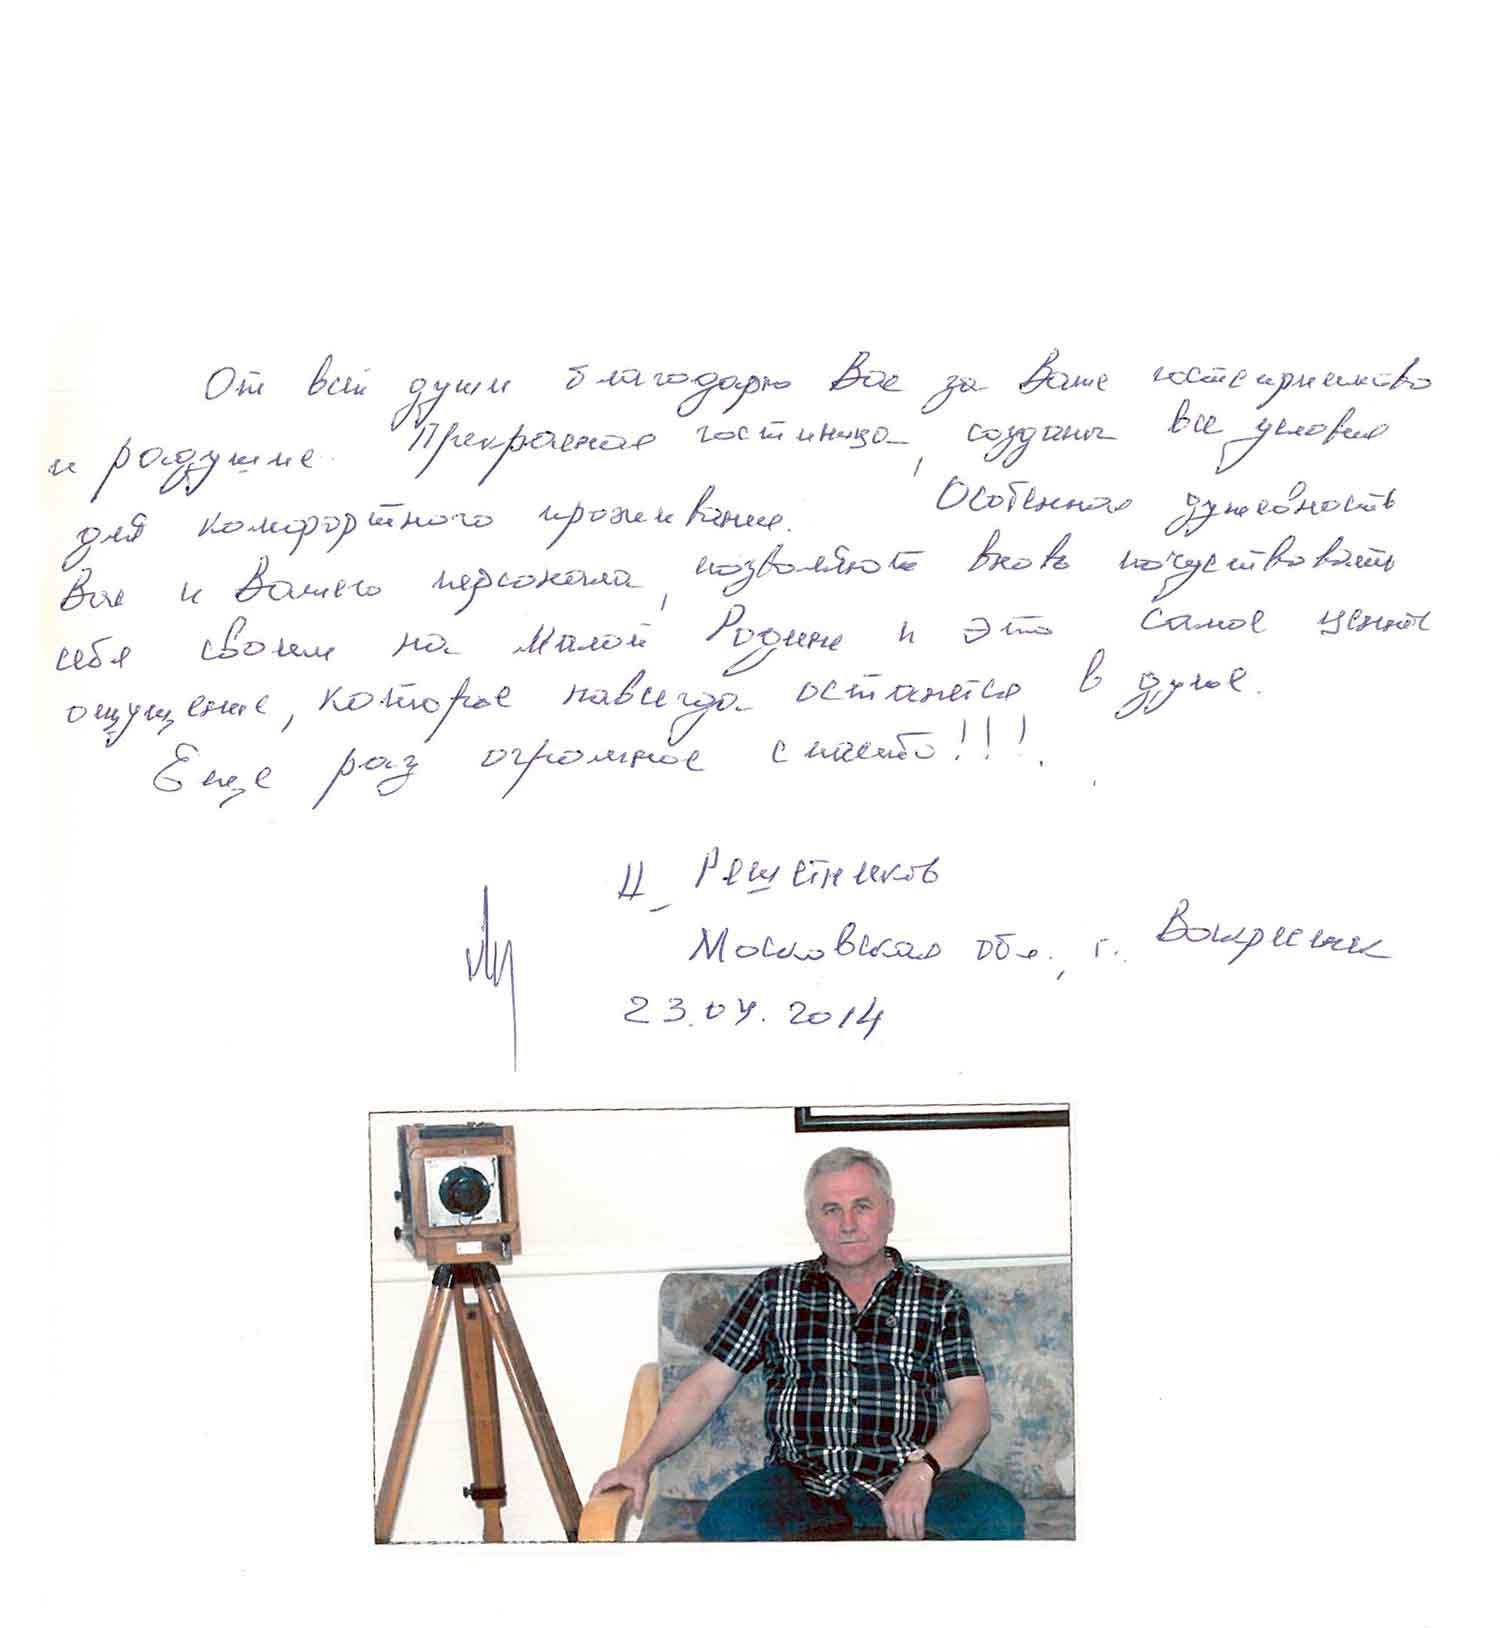 От всей души благодарю Вас за Ваше гостеприимство
и радушие. Прекрасная гостиница, созданы все условия
для комфортного проживания. Особенная душевность
Вас и Вашего персонала, позволяют вновь почуствовать
себя своим на Малой Родине и это самое ценное
ощущение, которое навсегда останется в душе.
Еще раз огромное спасибо!!!
Решетников
Московская обл., г. Воскресенск
2014